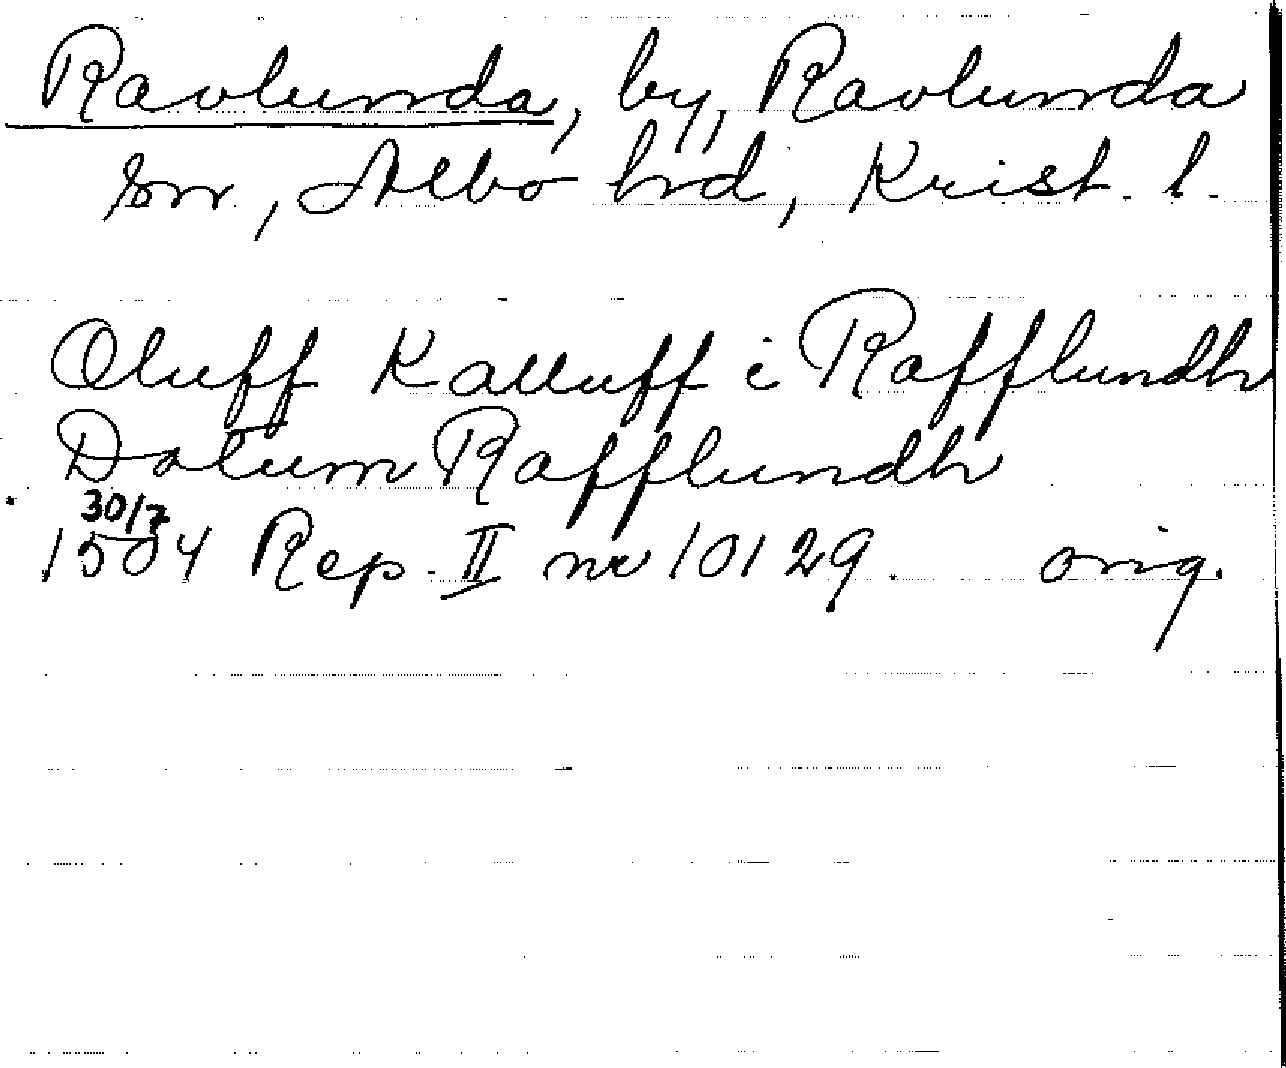 Ravlunda, by, Ravlunda
sn, Albo hrd, Krist. l.
Oluff Kalluff i Rafflundh
Datum Rafflundh
30/7
1504 Rep. II nr 10129. orig.